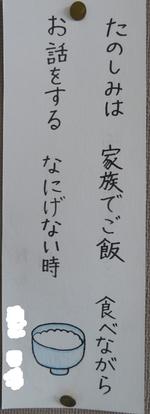 たのしみは 家族でご飯 食べながら
お話をする なにげない時